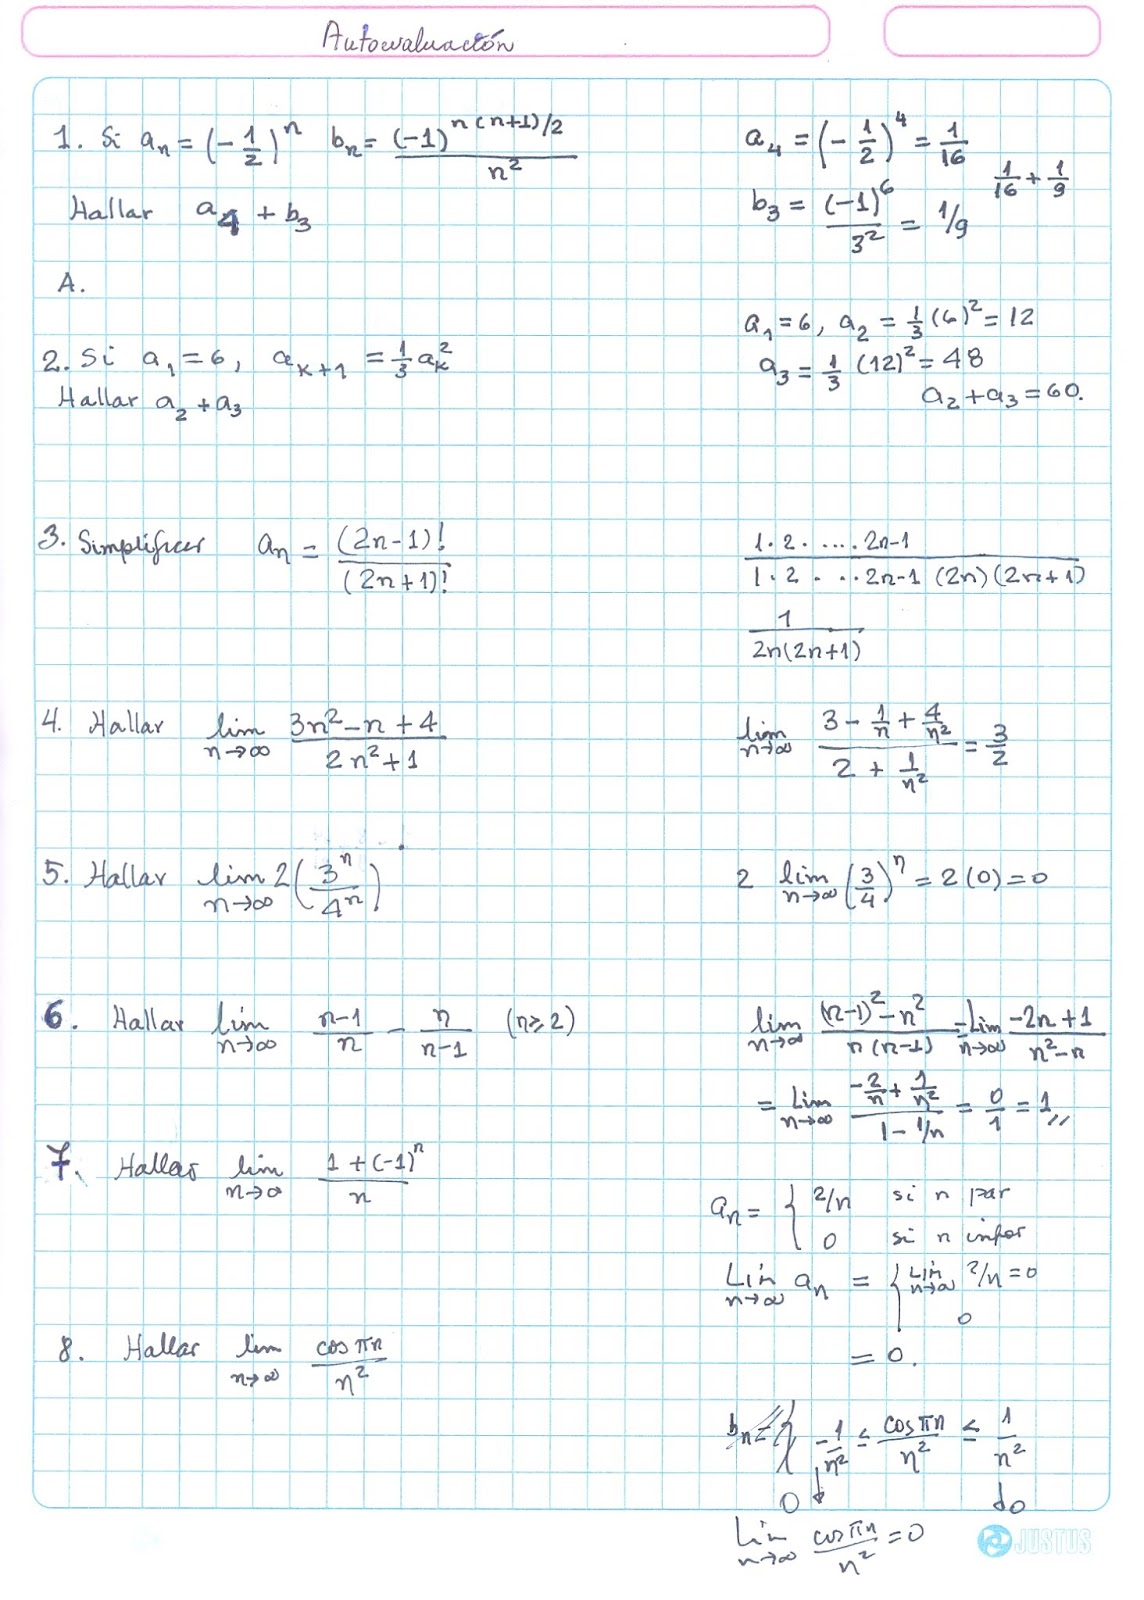 Autoevaluación
1. Si aₙ = (-1/2)ⁿ bₙ = (-1)^(n(n+1)/2) / n²
Hallar a₄ + b₃
a₄ = (-1/2)⁴ = 1/16
b₃ = (-1)⁶/3² = 1/9
1/16 + 1/9
A.
2. Si a₁ = 6, aₖ₊₁ = 1/3 aₖ²
Hallar a₂ + a₃
a₁ = 6, a₂ = 1/3 (6)² = 12
a₃ = 1/3 (12)² = 48
a₂ + a₃ = 60.
3. Simplificar aₙ = (2n-1)! / (2n+1)!
1·2·....2n-1 / 1·2·...2n-1 (2n)(2n+1)
1 / 2n(2n+1)
4. Hallar lim n→∞ 3n²-n+4 / 2n²+1
lim n→∞ (3 - 1/n + 4/n²) / (2 + 1/n²) = 3/2
5. Hallar lim n→∞ 2(3ⁿ/4ⁿ)
2 lim n→∞ (3/4)ⁿ = 2(0) = 0
6. Hallar lim n→∞ n-1/n - n/n-1 (n≥2)
lim n→∞ (n-1)²-n² / n(n-1) = Lim n→∞ -2n+1 / n²-n
= Lim n→∞ (-2/n + 1/n²) / (1 - 1/n) = 0/1 = 1,,
7. Hallar lim n→∞ 1+(-1)ⁿ / n
aₙ = { 2/n si n par
0 si n impar
Lim n→∞ aₙ = { Lim n→∞ 2/n = 0
0
= 0.
8. Hallar lim n→∞ cos πn / n²
bₙ = { -1/n² ≤ cos πn / n² ≤ 1/n²
0 ↓ ↓0
Lim n→∞ cos πn / n² = 0
JUSTUS